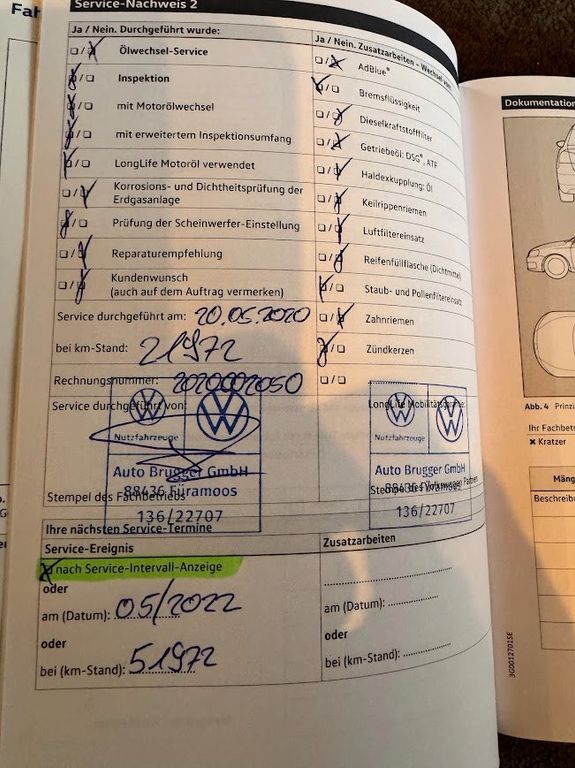 Fah
Service-Nachweis 2
Ja / Nein. Durchgeführt wurde:
Ölwechsel-Service
Inspektion
mit Motorölwechsel
mit erweitertem Inspektionsumfang
LongLife Motoröl verwendet
Korrosions- und Dichtheitsprüfung der
Erdgasanlage
Prüfung der Scheinwerfer-Einstellung
Reparaturempfehlung
Kundenwunsch
(auch auf dem Auftrag vermerken)
Service durchgeführt am: 20.05.2020
bei km-Stand: 21972
Rechnungsnummer: 2020002050
Service durchgeführt von:
Nutzfahrzeuge
Auto Brugger GmbH
88436 Füramoos
Stempel des Fachbetriebs
136/22707
Ja / Nein. Zusatzarbeiten – Wechsel von:
AdBlue®
Bremsflüssigkeit
Dieselkraftstofffilter
Getriebeöl: DSG®, ATF
Haldexkupplung: Öl
Keilrippenriemen
Luftfiltereinsatz
Reifenfüllflasche (Dichtmittel)
Staub- und Pollenfiltereinsatz
Zahnriemen
Zündkerzen
LongLife Mobilitätsgarantie
Nutzfahrzeuge
Auto Brugger GmbH
88436 Füramoos
Stempel des Volkswagen Partners
136/22707
Ihre nächsten Service-Termine
Service-Ereignis
nach Service-Intervall-Anzeige
oder
am (Datum): 05/2022
oder
bei (km-Stand): 51972
Zusatzarbeiten
am (Datum):
oder
bei (km-Stand):
3G0012701SE
Dokumentation
Abb. 4 Prinzi
Ihr Fachbet
Kratzer
Mäng
Beschreibu